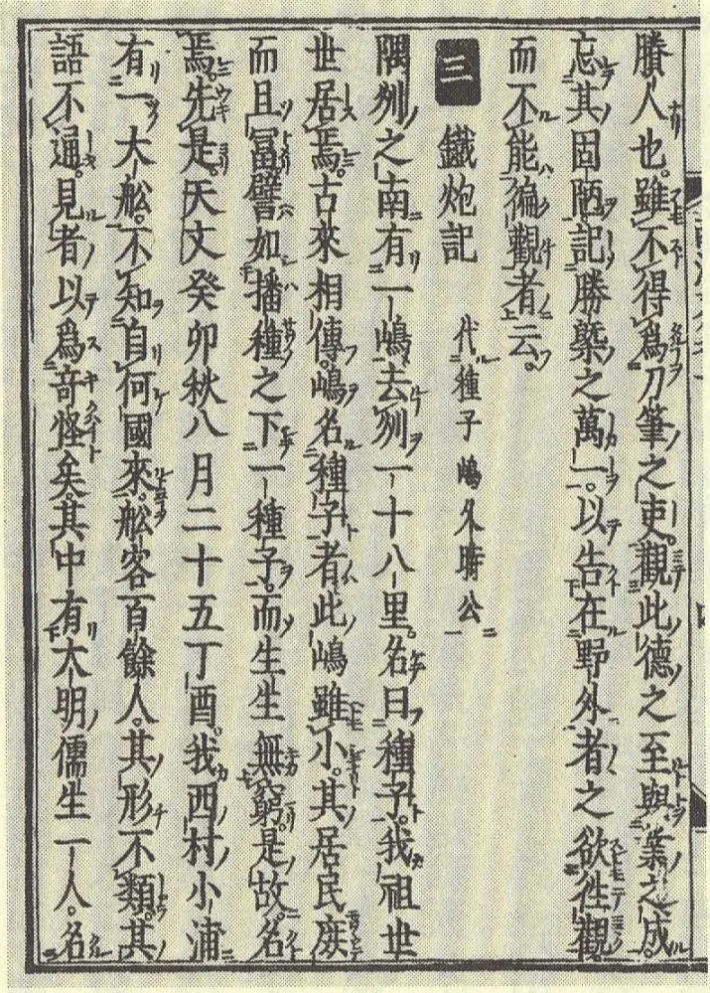 賸人也雖不得爲刀筆之吏觀此德之至與業之成
忘其固陋記勝槩之萬一以告在野外者之欲徃觀
而不能徧觀者云
三 鐵炮記 代種子嶋久時公
隅刕之南有一嶋去刕一十八里名曰種子我祖世
世居焉古來相傳嶋名種子者此嶋雖小其居民庻
而且冨譬如播種之下一種子而生生無窮是故名
焉先是天文癸卯秋八月二十五丁酉我西村小浦
有一大舩不知自何國來舩客百餘人其形不類其
語不通見者以爲奇怪矣其中有大明儒生一人名